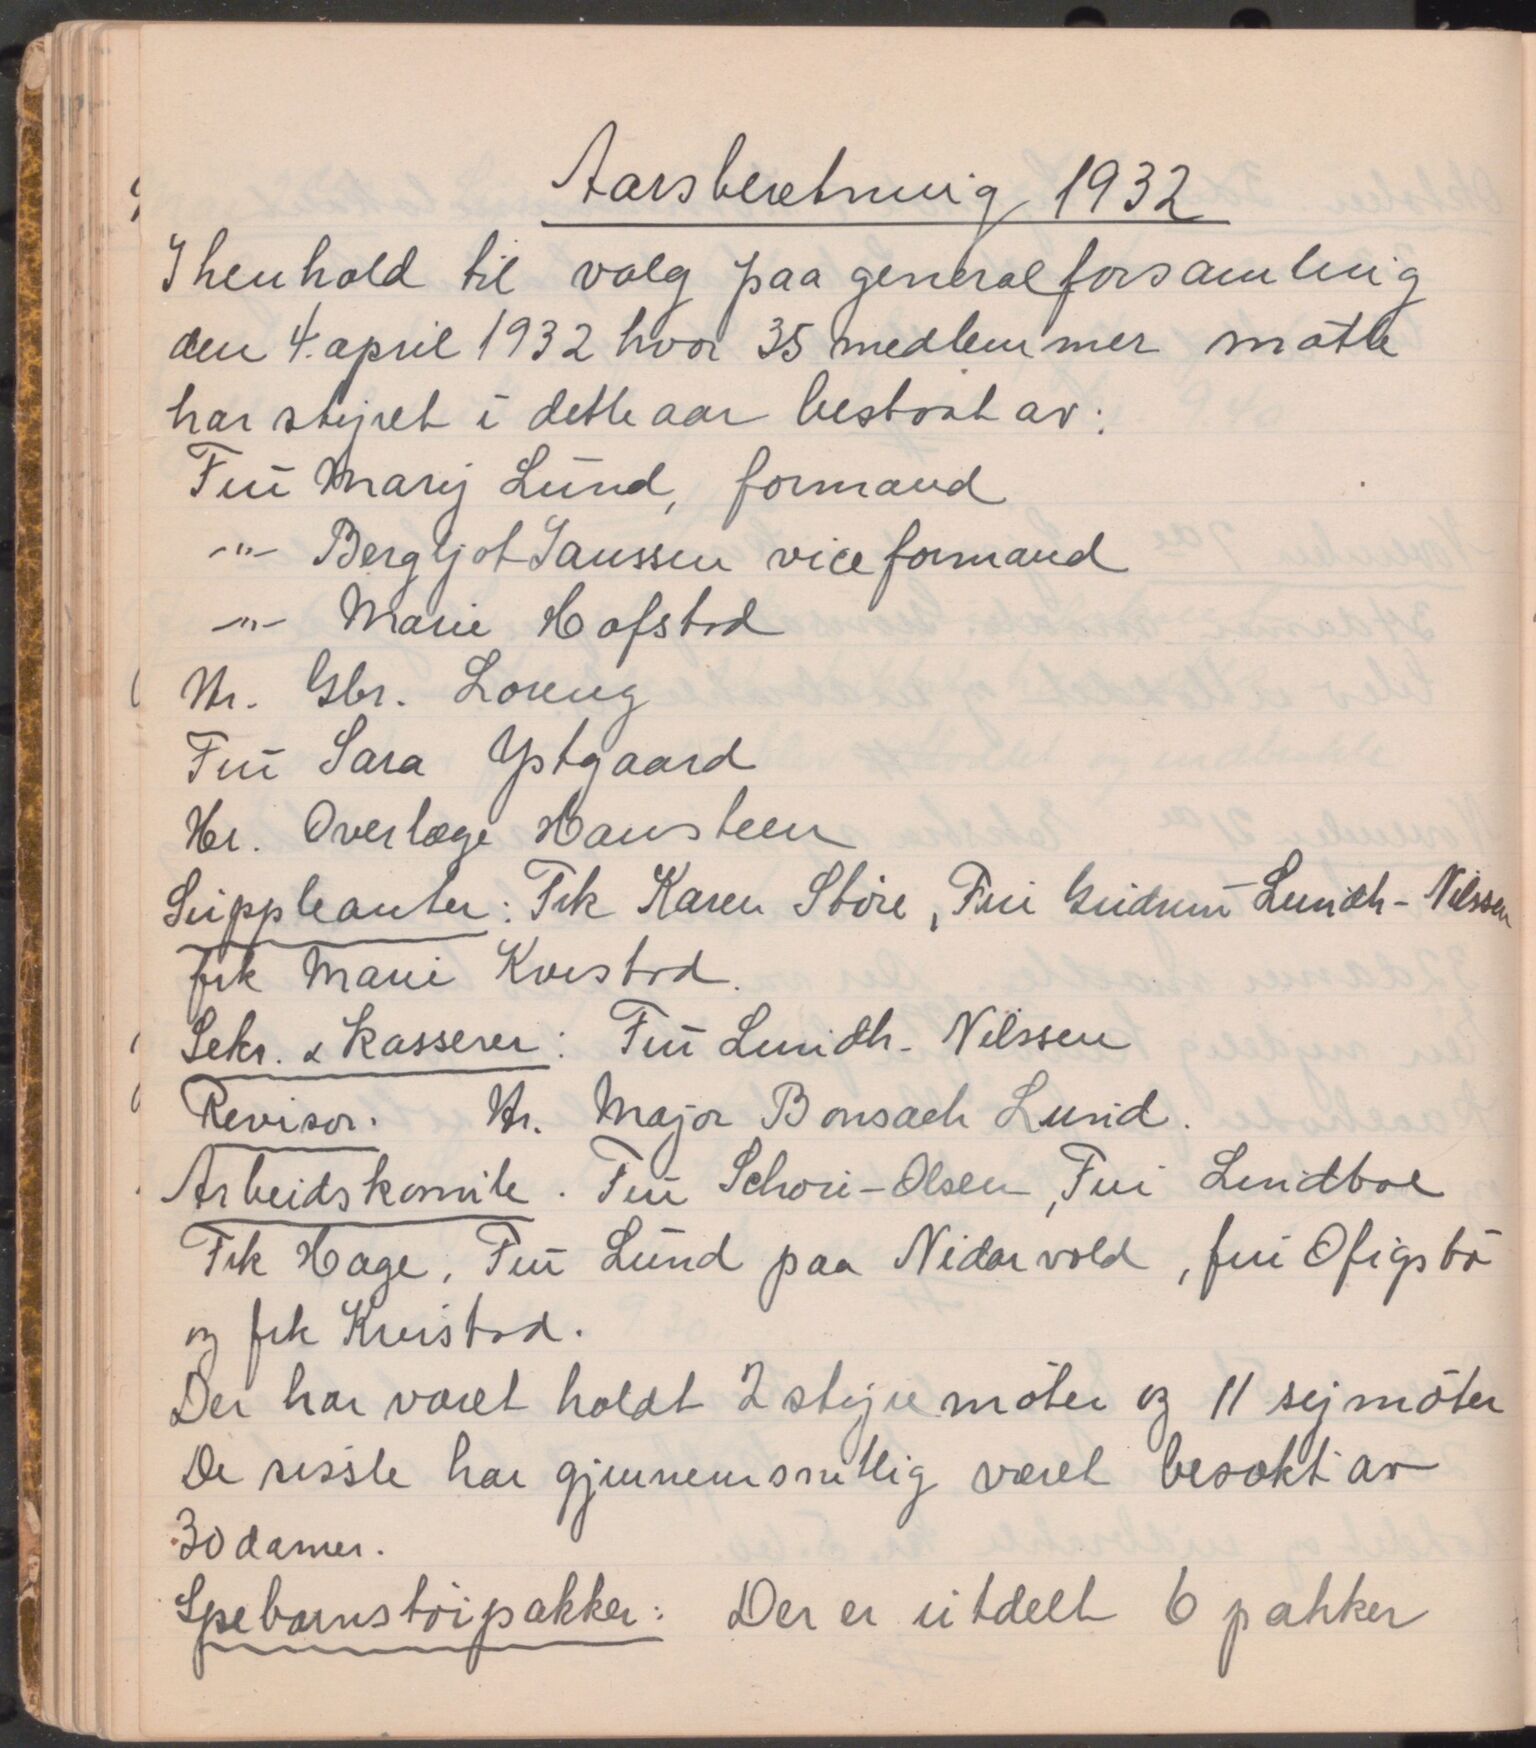 Aarsberetning 1932
I henhold til valg paa generalforsamling
den 4. april 1932 hvor 35 medlemmer mötte
har styret i dette aar bestaat av:
Fru Mary Lund, formand
-"- Bergljot Janssen viceformand
-"- Marie Hofstad
Hr. Gbr. Loreng
Fru Sara Ystgaard
Hr. Overlæge Hansteen
Suppleanter: Frk Karen Störe, Fru Gudrun Lundh-Nilssen
frk Marie Kvistad.
Sekr. & kasserer: Fru Lundh-Nilssen
Revisor. Hr. Major Bonsach Lund.
Arbeidskomite. Fru Schou-Olsen, Fru Lindboe
Frk Hage, Fru Lund paa Nidarvold, fru Ofigsbö
og frk Kvistad.
Der har været holdt 2 styremöter og 11 symöter
De sisste har gjennemsnitlig været besökt av
30 damer.
Spebarnstöipakker: Der er utdelt 6 pakker